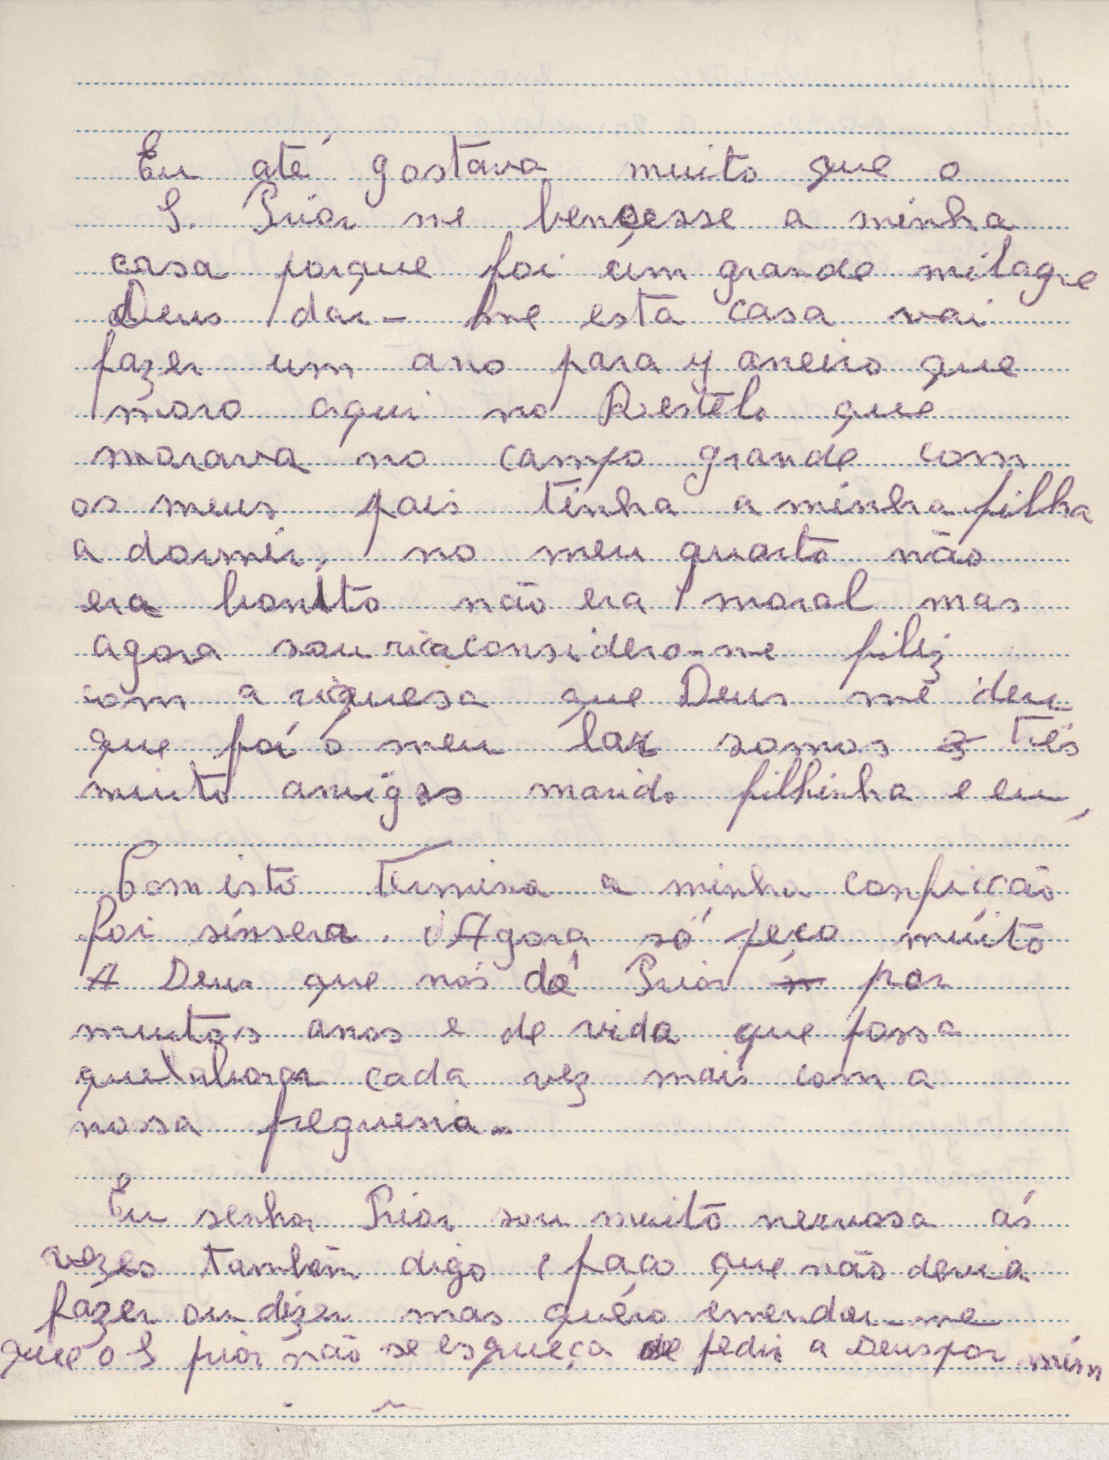 Eu até gostava muito que o
S. Prior me bencesse a minha
casa porque foi um grande milagre
Deus dar-me esta casa vai
fazer um ano para Janeiro que
moro aqui no Restelo que
morava no campo grande com
os meus pais tinha a minha filha
a dormir, no meu quarto não
era bonito não era moral mas
agora sou rica considero-me filiz
com a riquesa que Deus me deu
que foi o meu lar somos os três
muito amigos marido filhinha e eu,
Com isto termina a minha confição
foi sinsera. Agora só peço muito
A Deus que nos dê Prior por
muitos anos e de vida que possa
cada vez mais com a
nosa freguesia.
Eu senhor Prior sou muito nervosa ás
vezes também digo e faço que não devia
fazer ou dizer mas quero emendar-me
que o S prior não se esqueça de pedir a Deus por mim